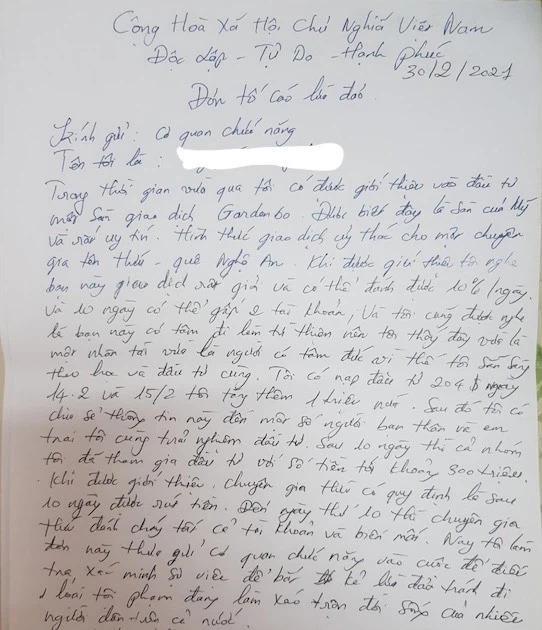 Cộng Hoà Xã Hội Chủ Nghĩa Việt Nam
Độc Lập - Tự Do - Hạnh Phúc
30/2/2021
Đơn tố cáo lừa đảo
Kính gửi: Cơ quan chức năng
Tên tôi là:
Trong thời gian vừa qua tôi có được giới thiệu vào đầu tư
một sàn giao dịch Gardenbo. Được biết đây là sàn của Mỹ
và rất uy tín. Hình thức giao dịch uỷ thác cho một chuyên
gia tên Thức - quê Nghệ An. Khi được giới thiệu tôi nghe
bạn này giao dịch rất giỏi và có thể đánh được 10%/ngày.
và 10 ngày có thể gấp 2 tài khoản, Và tôi cũng được nghe
là bạn này có tâm đi làm từ thiện nên tôi thấy đây vừa là
một nhân tài vừa là người có tâm đức vì thế tôi sẵn sàng
theo học và đầu tư cùng. Tôi có nạp đầu tư 204 $ ngày
14.2 và 15/2 tôi tăng thêm 1 triệu nữa. Sau đó tôi có
chia sẻ thông tin này đến một số người bạn thân và em
trai tôi cùng trải nghiệm đầu tư. Sau 10 ngày thì cả nhóm
tôi đã tham gia đầu tư với số tiền tới khoảng 300 triệu.
Khi được giới thiệu, chuyên gia Thức có quy định là sau
10 ngày được rút tiền. Đến ngày thứ 10 thì chuyên gia
Thức đánh cháy tất cả tài khoản và biến mất. Nay tôi làm
đơn này thức gửi cơ quan chức năng vào cuộc để điều
tra, xác minh sự việc để bắt kẻ lừa đảo tránh đi
1 loại tội phạm đang làm xáo trộn đời sống của nhiều
người dân trên cả nước.